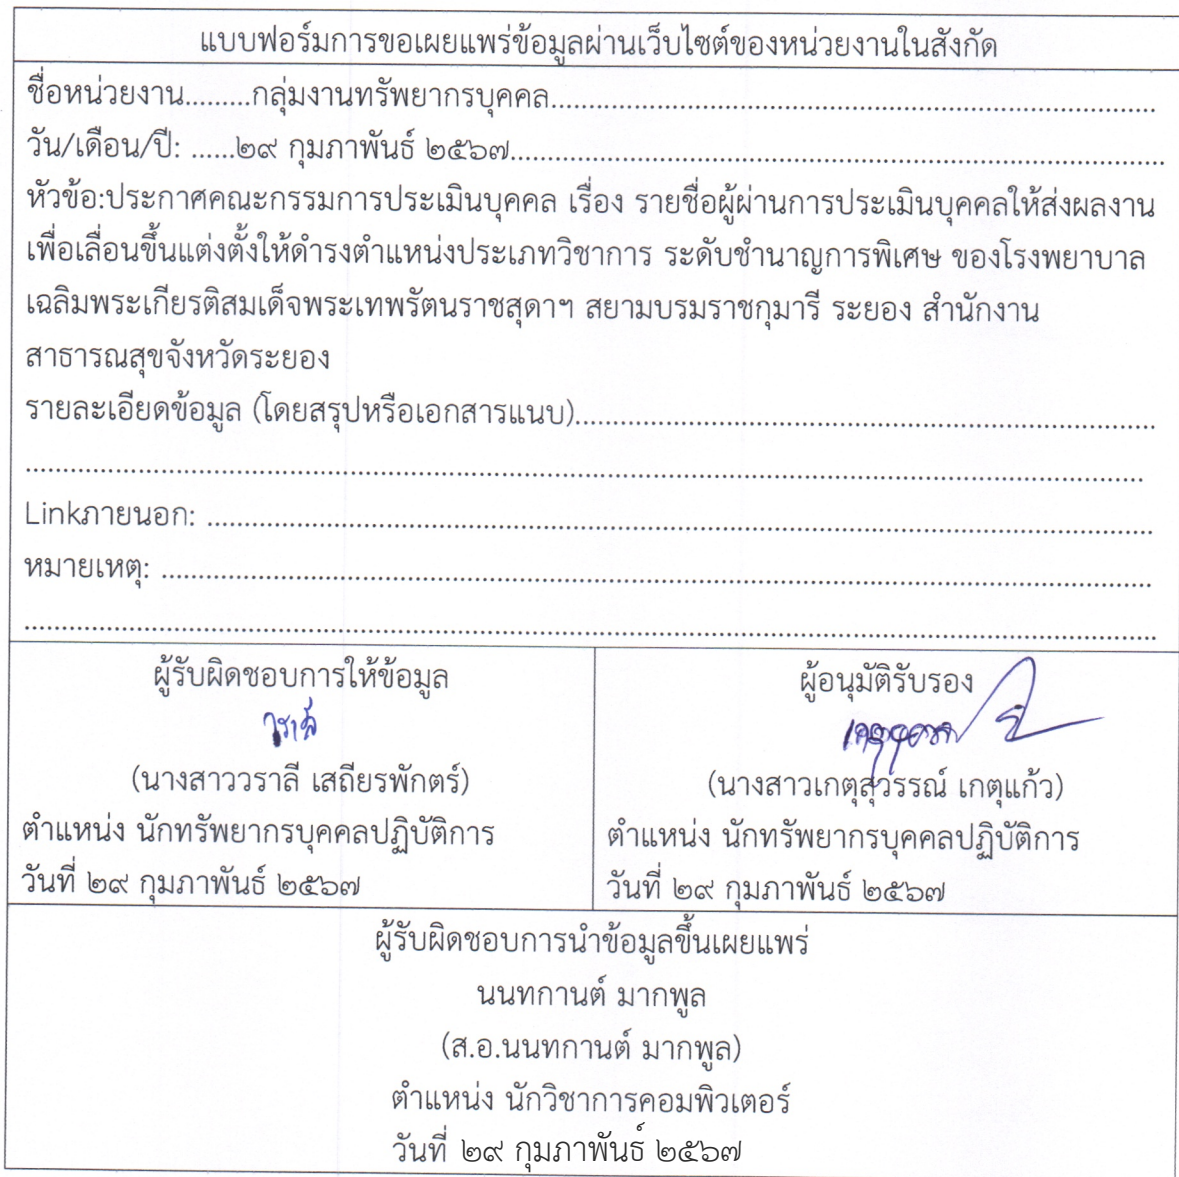 แบบฟอร์มการขอเผยแพร่ข้อมูลผ่านเว็บไซต์ของหน่วยงานในสังกัด
ชื่อหน่วยงาน.........กลุ่มงานทรัพยากรบุคคล.......................................................................................
วัน/เดือน/ปี: ......๒๙ กุมภาพันธ์ ๒๕๖๗...............................................................................................
หัวข้อ:ประกาศคณะกรรมการประเมินบุคคล เรื่อง รายชื่อผู้ผ่านการประเมินบุคคลให้ส่งผลงาน
เพื่อเลื่อนขึ้นแต่งตั้งให้ดำรงตำแหน่งประเภทวิชาการ ระดับชำนาญการพิเศษ ของโรงพยาบาล
เฉลิมพระเกียรติสมเด็จพระเทพรัตนราชสุดาฯ สยามบรมราชกุมารี ระยอง สำนักงาน
สาธารณสุขจังหวัดระยอง
รายละเอียดข้อมูล (โดยสรุปหรือเอกสารแนบ)....................................................................................
..........................................................................................................................................................
Linkภายนอก: ......................................................................................................................................
หมายเหตุ: ...........................................................................................................................................
..........................................................................................................................................................
ผู้รับผิดชอบการให้ข้อมูล
วราลี
(นางสาววราลี เสถียรพักตร์)
ตำแหน่ง นักทรัพยากรบุคคลปฏิบัติการ
วันที่ ๒๙ กุมภาพันธ์ ๒๕๖๗
ผู้อนุมัติรับรอง
(นางสาวเกตุสุวรรณ์ เกตุแก้ว)
ตำแหน่ง นักทรัพยากรบุคคลปฏิบัติการ
วันที่ ๒๙ กุมภาพันธ์ ๒๕๖๗
ผู้รับผิดชอบการนำข้อมูลขึ้นเผยแพร่
นนทกานต์ มากพูล
(ส.อ.นนทกานต์ มากพูล)
ตำแหน่ง นักวิชาการคอมพิวเตอร์
วันที่ ๒๙ กุมภาพันธ์ ๒๕๖๗